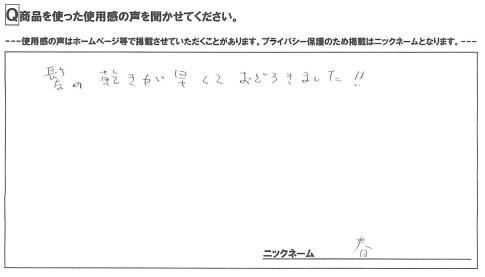 Q商品を使った使用感の声を聞かせてください。
---使用感の声はホームページ等で掲載させていただくことがあります。プライバシー保護のため掲載はニックネームとなります。---
髪の乾きが早くておどろきました!!
ニックネーム 春